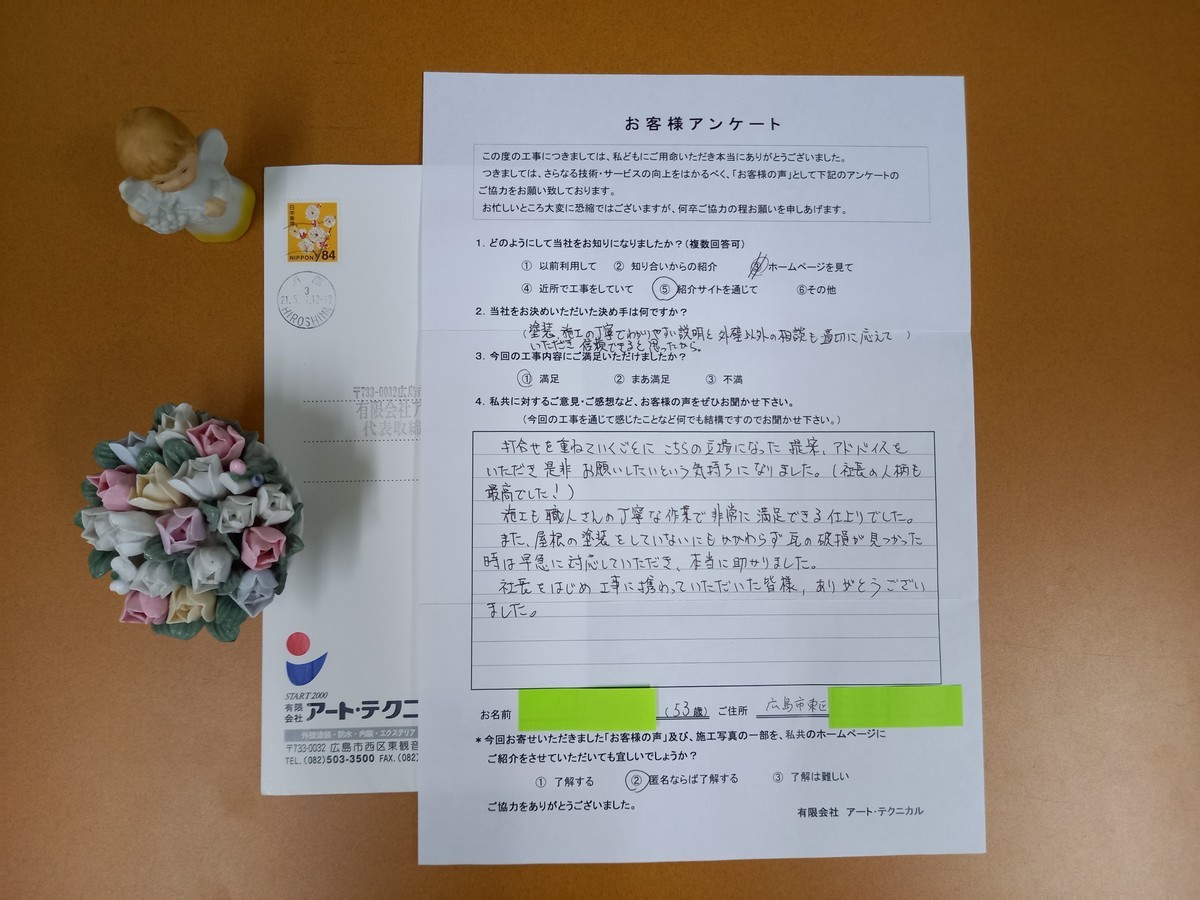 お客様アンケート
この度の工事につきましては、私どもにご用命いただき本当にありがとうございました。
つきましては、さらなる技術・サービスの向上をはかるべく、「お客様の声」として下記のアンケートの
ご協力をお願い致しております。
お忙しいところ大変に恐縮ではございますが、何卒ご協力の程お願いを申しあげます。
1. どのようにして当社をお知りになりましたか？(複数回答可)
① 以前利用して ② 知り合いからの紹介 ③ ホームページを見て
④ 近所で工事をしていて ⑤ 紹介サイトを通じて ⑥その他
2. 当社をお決めいただいた決め手は何ですか？
(塗装、施工の丁寧でわかりやすい説明と外壁以外の相談も適切に応えて)
いただき信頼できると思ったから。
3. 今回の工事内容にご満足いただけましたか？
① 満足 ② まあ満足 ③ 不満
4. 私共に対するご意見・ご感想など、お客様の声をぜひお聞かせ下さい。
(今回の工事を通じて感じたことなど何でも結構ですのでお聞かせ下さい。)
打合せを重ねていくごとにこちらの立場になった提案、アドバイスを
いただき是非お願いしたいという気持ちになりました。(社長の人柄も
最高でした！)
施工も職人さんの丁寧な作業で非常に満足できる仕上りでした。
また、屋根の塗装をしていないにもかかわらず瓦の破損が見つかった
時は早急に対応していただき、本当に助かりました。
社長をはじめ工事に携わっていただいた皆様、ありがとうござい
ました。
お名前 (53歳) ご住所 広島市東区
*今回お寄せいただきました「お客様の声」及び、施工写真の一部を、私共のホームページに
ご紹介をさせていただいても宜しいでしょうか？
① 了解する ② 匿名ならば了解する ③ 了解は難しい
ご協力をありがとうございました。
有限会社 アート・テクニカル
日本郵便
NIPPON 84
3
HIROSHIMA
〒733-0032広島市
有限会社ア
代表取締
START 2000
有限会社 アート・テクニ
外壁塗装・防水・内装・エクステリア
〒733-0032 広島市西区東観音
TEL.(082)503-3500 FAX.(082)